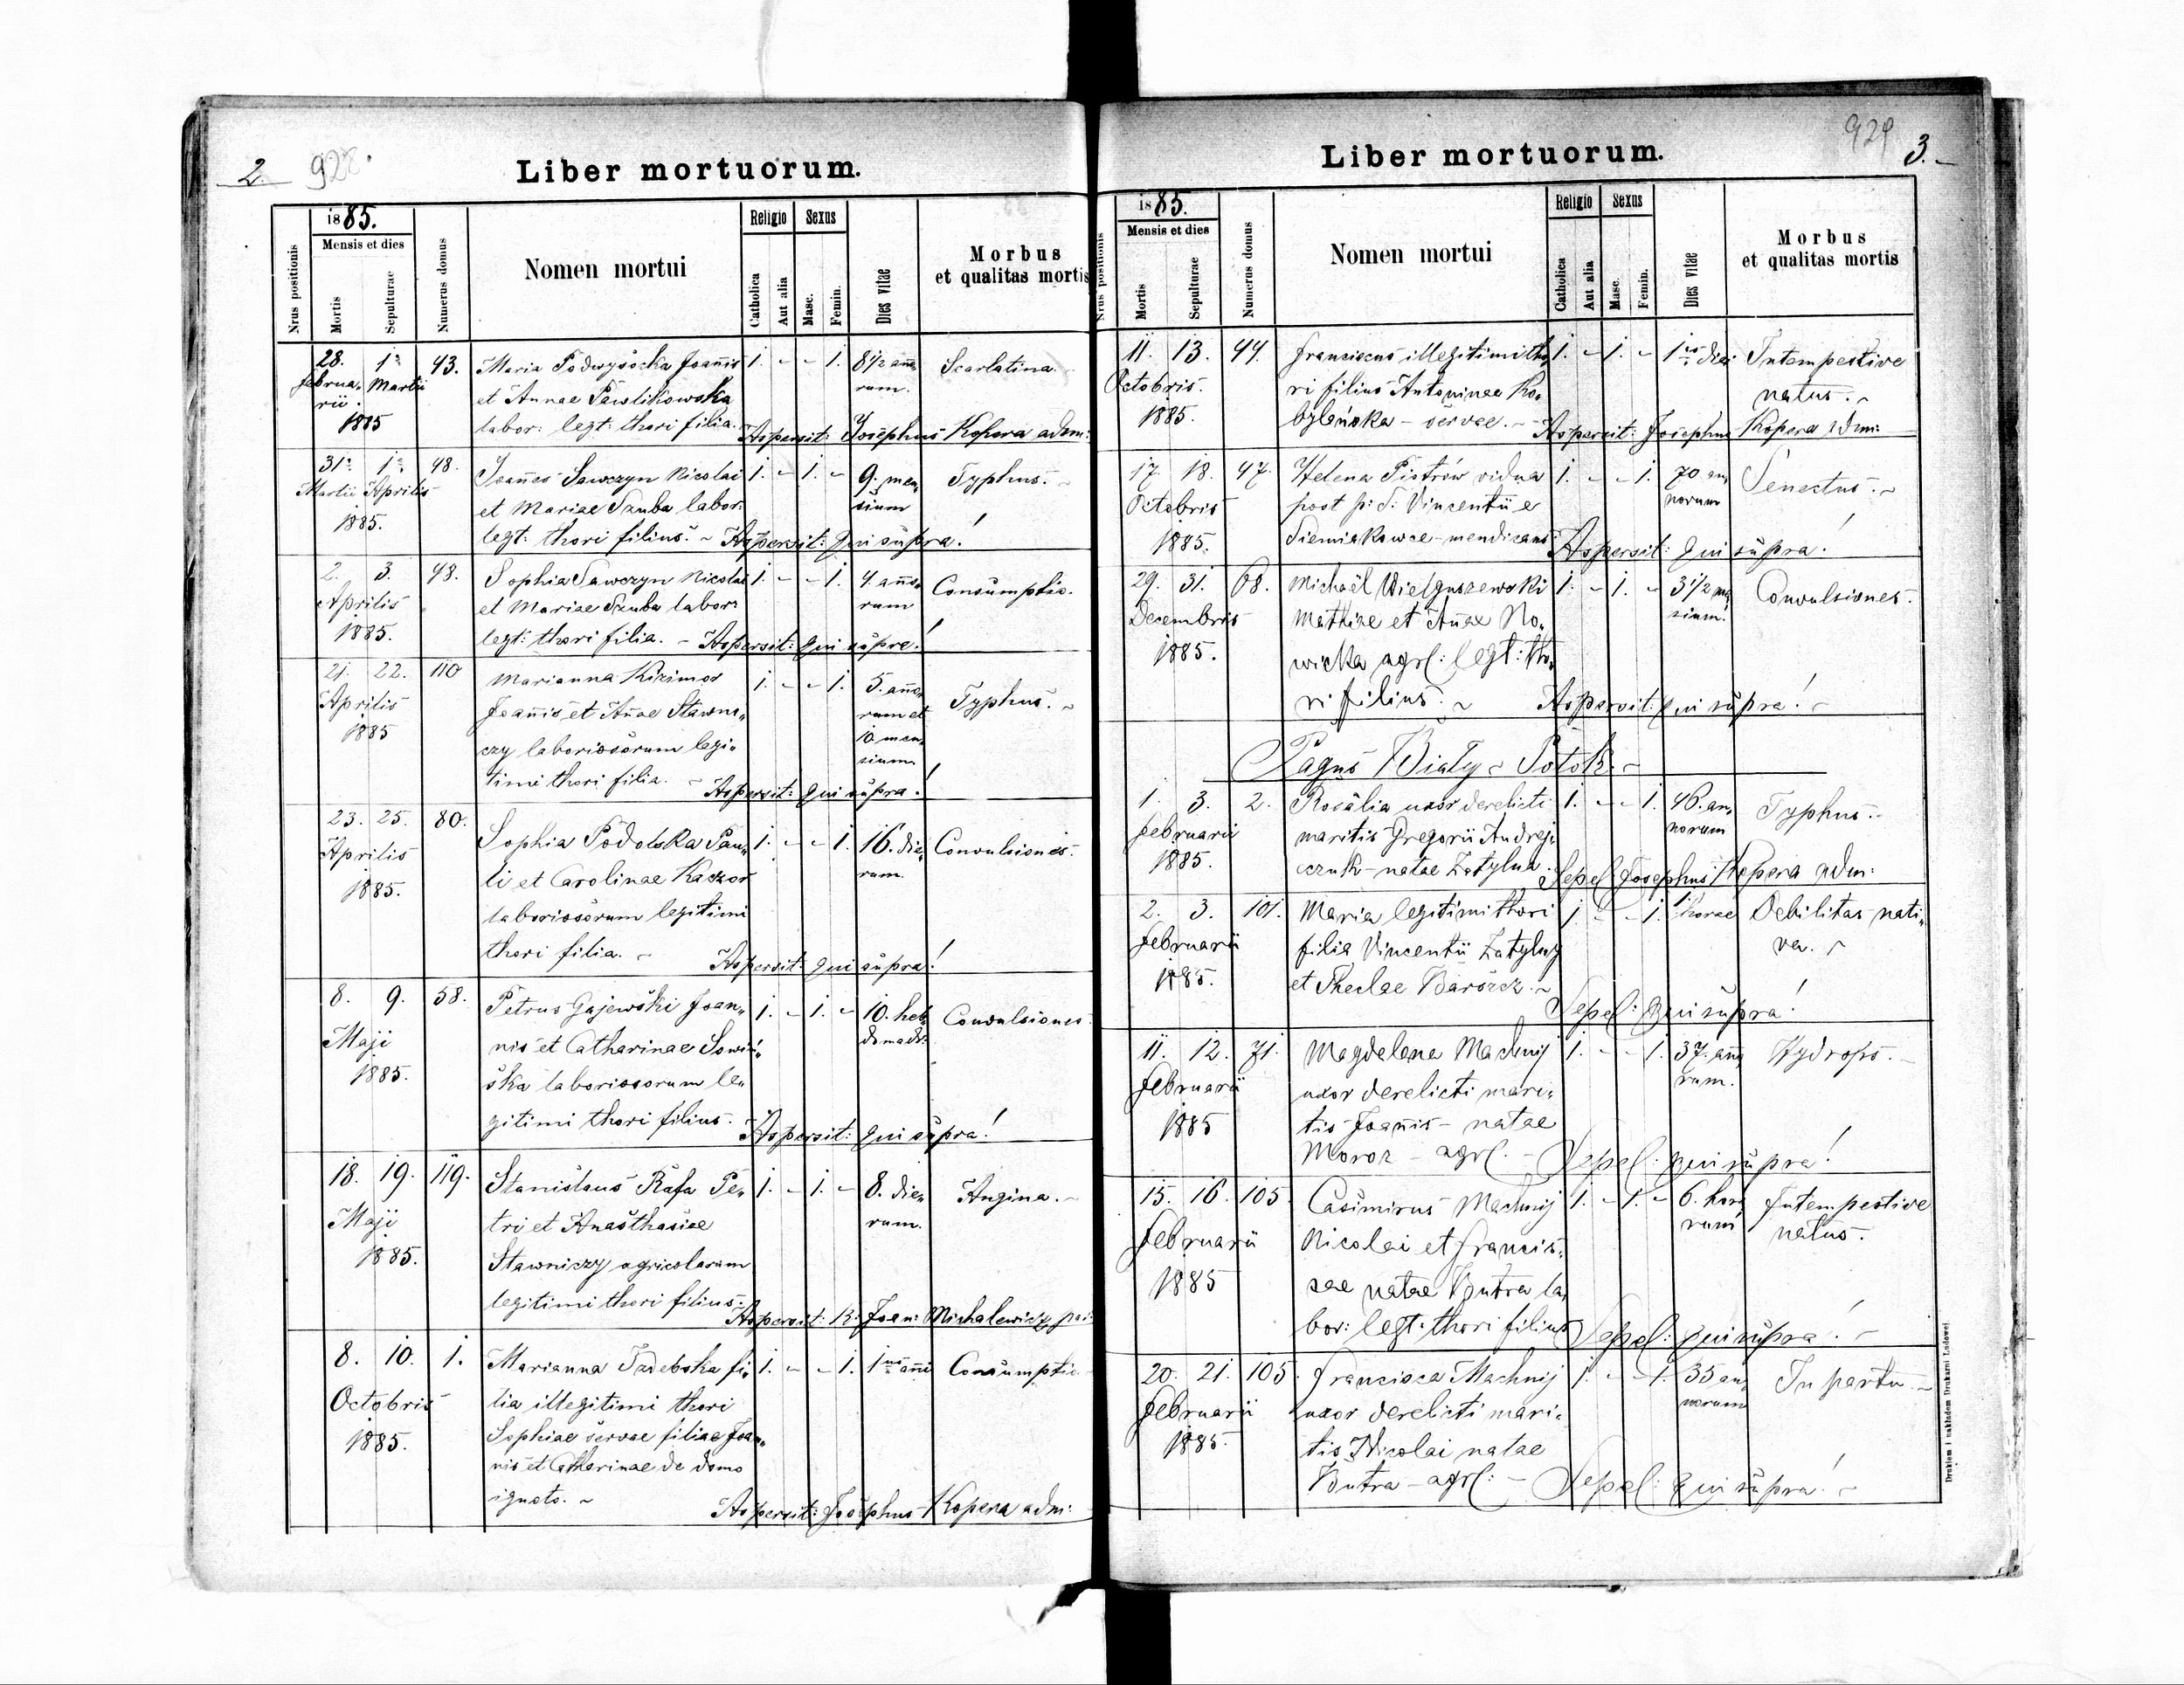 2.
928.
Liber mortuorum.
1885.
Mensis et dies
Nrus positionis
Mortis
Sepulturae
Numerus domus
Nomen mortui
Religio
Sexus
Catholica
Aut alia
Masc.
Femin.
Dies vitae
Morbus
et qualitas mortis
28. 1a 43. Maria Podwysocka Joannis 1. - - 1. 8 1/2 anno, Scarlatina.
Februa, Martii et Annae Pawlikowska rum.
rii.
1885 labor: legt: thori filia. Aspersit: Josephus Kopera adm:
31a 1a 48. Joannes Sawczyn Nicolai 1. - 1. - 9. men, Typhus. ~
Martii Aprilis et Mariae Szuba labor: sium
1885. legt: thori filius. ~ Aspersit: qui supra!
2. 3. 48. Sophia Sawczyn Nicolai 1. - - 1. 4 anno, Consumptio.
Aprilis et Mariae Szuba labor: rum
1885. legt: thori filia. - Aspersit: qui supra!
21. 22. 110 Marianna Kizimor 1. - - 1. 5. anno, Typhus. ~
Aprilis Joannis et Annae Stawni, rum et
1885 czy laboriosorum legi, 10 men,
sium.
timi thori filia. ~ Aspersit: qui supra!
23. 25. 80. Sophia Podolska Pau, 1. - - 1. 16. die, Convulsiones.
Aprilis li et Carolinae Kaczor rum.
1885. laboriosorum legitimi
thori filia. ~ Aspersit: qui supra!
8. 9. 58. Petrus Gajewski Joan, 1. - 1. - 10. heb, Convulsiones
Maji nis et Catharinae Sowiń, domad.
1885. ska laboriosorum le,
gitimi thori filius. Aspersit: qui supra!
18. 19. 119. Stanislaus Rafa Pe, 1. - 1. - 8. die, Angina. ~
Maji tri et Anasthasiae rum.
1885. Stawniczy agricolarum
legitimi thori filius. Aspersit: R: Joan: Michalewicz
8. 10. 1. Marianna fi, 1. - - 1. 1us anni Consumptio
Octobris lia illegitimi thori
1885. Sophiae servae filiae Joan,
nis et Catharinae de domo
ignoto. ~ Aspersit: Josephus Kopera adm:
929 3.
Liber mortuorum.
1885.
Mensis et dies
Nrus positionis
Mortis
Sepulturae
Numerus domus
Nomen mortui
Religio
Sexus
Catholica
Aut alia
Masc.
Femin.
Dies vitae
Morbus
et qualitas mortis
11. 13. 44. Franciscus illegitimi tho, 1. - 1. - 1us diei Intempestive
Octobris. ri filius Antoninae Ko, natus. ~
1885. bylańska - servae. - Aspersit: Josephus Kopera adm:
17. 18. 47. Helena Piotrów vidua 1. - - 1. 70 an, Senectus. ~
Octobris post p: d: Vincentii e norum
1885. Siemiakowce - mendicans Aspersit: qui supra!
29. 31. 68. Michaël Wielguszewski 1. - 1. - 3 1/2 me, Convulsiones.
Decembris Mathiae et Annae No, sium.
1885. wicka agrl: legt: tho,
ri filius. ~ Aspersit: qui supra! ~
Pagus Biały - Potok. ~
1. 3. 2. Rosalia uxor derelicti 1. - - 1. 46. an, Typhus. -
Februarii maritis Gregorii Andrej, norum
1885. czuk - natae Zatylna. Sepel: Josephus Kopera adm:
2. 3. 101. Maria legitimi thori 1. - - 1. 1 horae Debilitas nati,
Februarii filia Vincentii Zatylny va. ~
1885. et Theclae Barszcz. ~
Sepel: qui supra!
11. 12. 71. Magdalena Machnij 1. - - 1. 37. anno, Hydrops. -
Februarii uxor derelicti mari, rum.
1885 tis Joannis - natae
Moroz - agrl. - Sepel: qui supra!
15. 16. 105. Casimirus Machnij 1. - 1. - 6. hora, Intempestive
Februarii Nicolai et Francis, rum natus.
1885 cae natae Butra la,
bor: legt: thori filius Sepel: qui supra! -
20. 21. 105. Francisca Machnij 1. - - 1. 35 an, In partu. ~
Februarii uxor derelicti mari, norum
1885. tis Nicolai natae
Butra - agrl: - Sepel: qui supra! -
Drukiem i nakładem Drukarni Ludowej